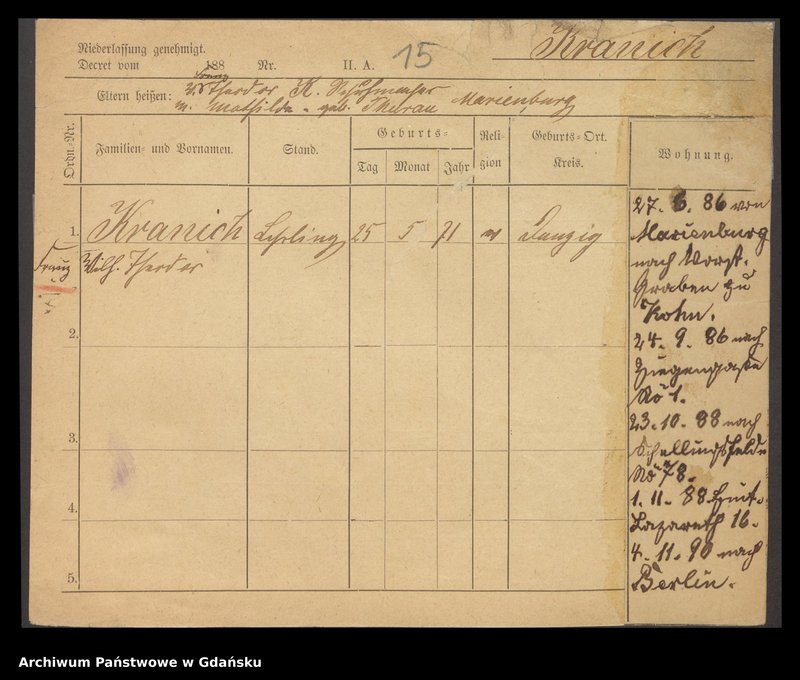 Kranich
Niederlassung genehmigt.
Decret vom 188 Nr. II. A. 15
Franz
Eltern heißen: V. Theodor K. Schuhmacher
m. Mathilde geb. Thurau Marienburg
Ordn.-Nr. Familien- und Vornamen. Stand. Geburts- Tag Monat Jahr Religion Geburts-Ort. Kreis. Wohnung.
1. Kranich Lehrling 25 5 71 Danzig
Franz Wilh. Theodor
2.
3.
4.
5.
27. 6. 86 von
Marienburg
nach Vorst.
Graben zu
Kohn.
24. 9. 86 nach
Ziegengasse
No 1.
23. 10. 88 nach
Schellingsfelde
No 78.
1. 11. 88
Lazareth 16.
4. 11. 90 nach
Berlin.
Archiwum Państwowe w Gdańsku